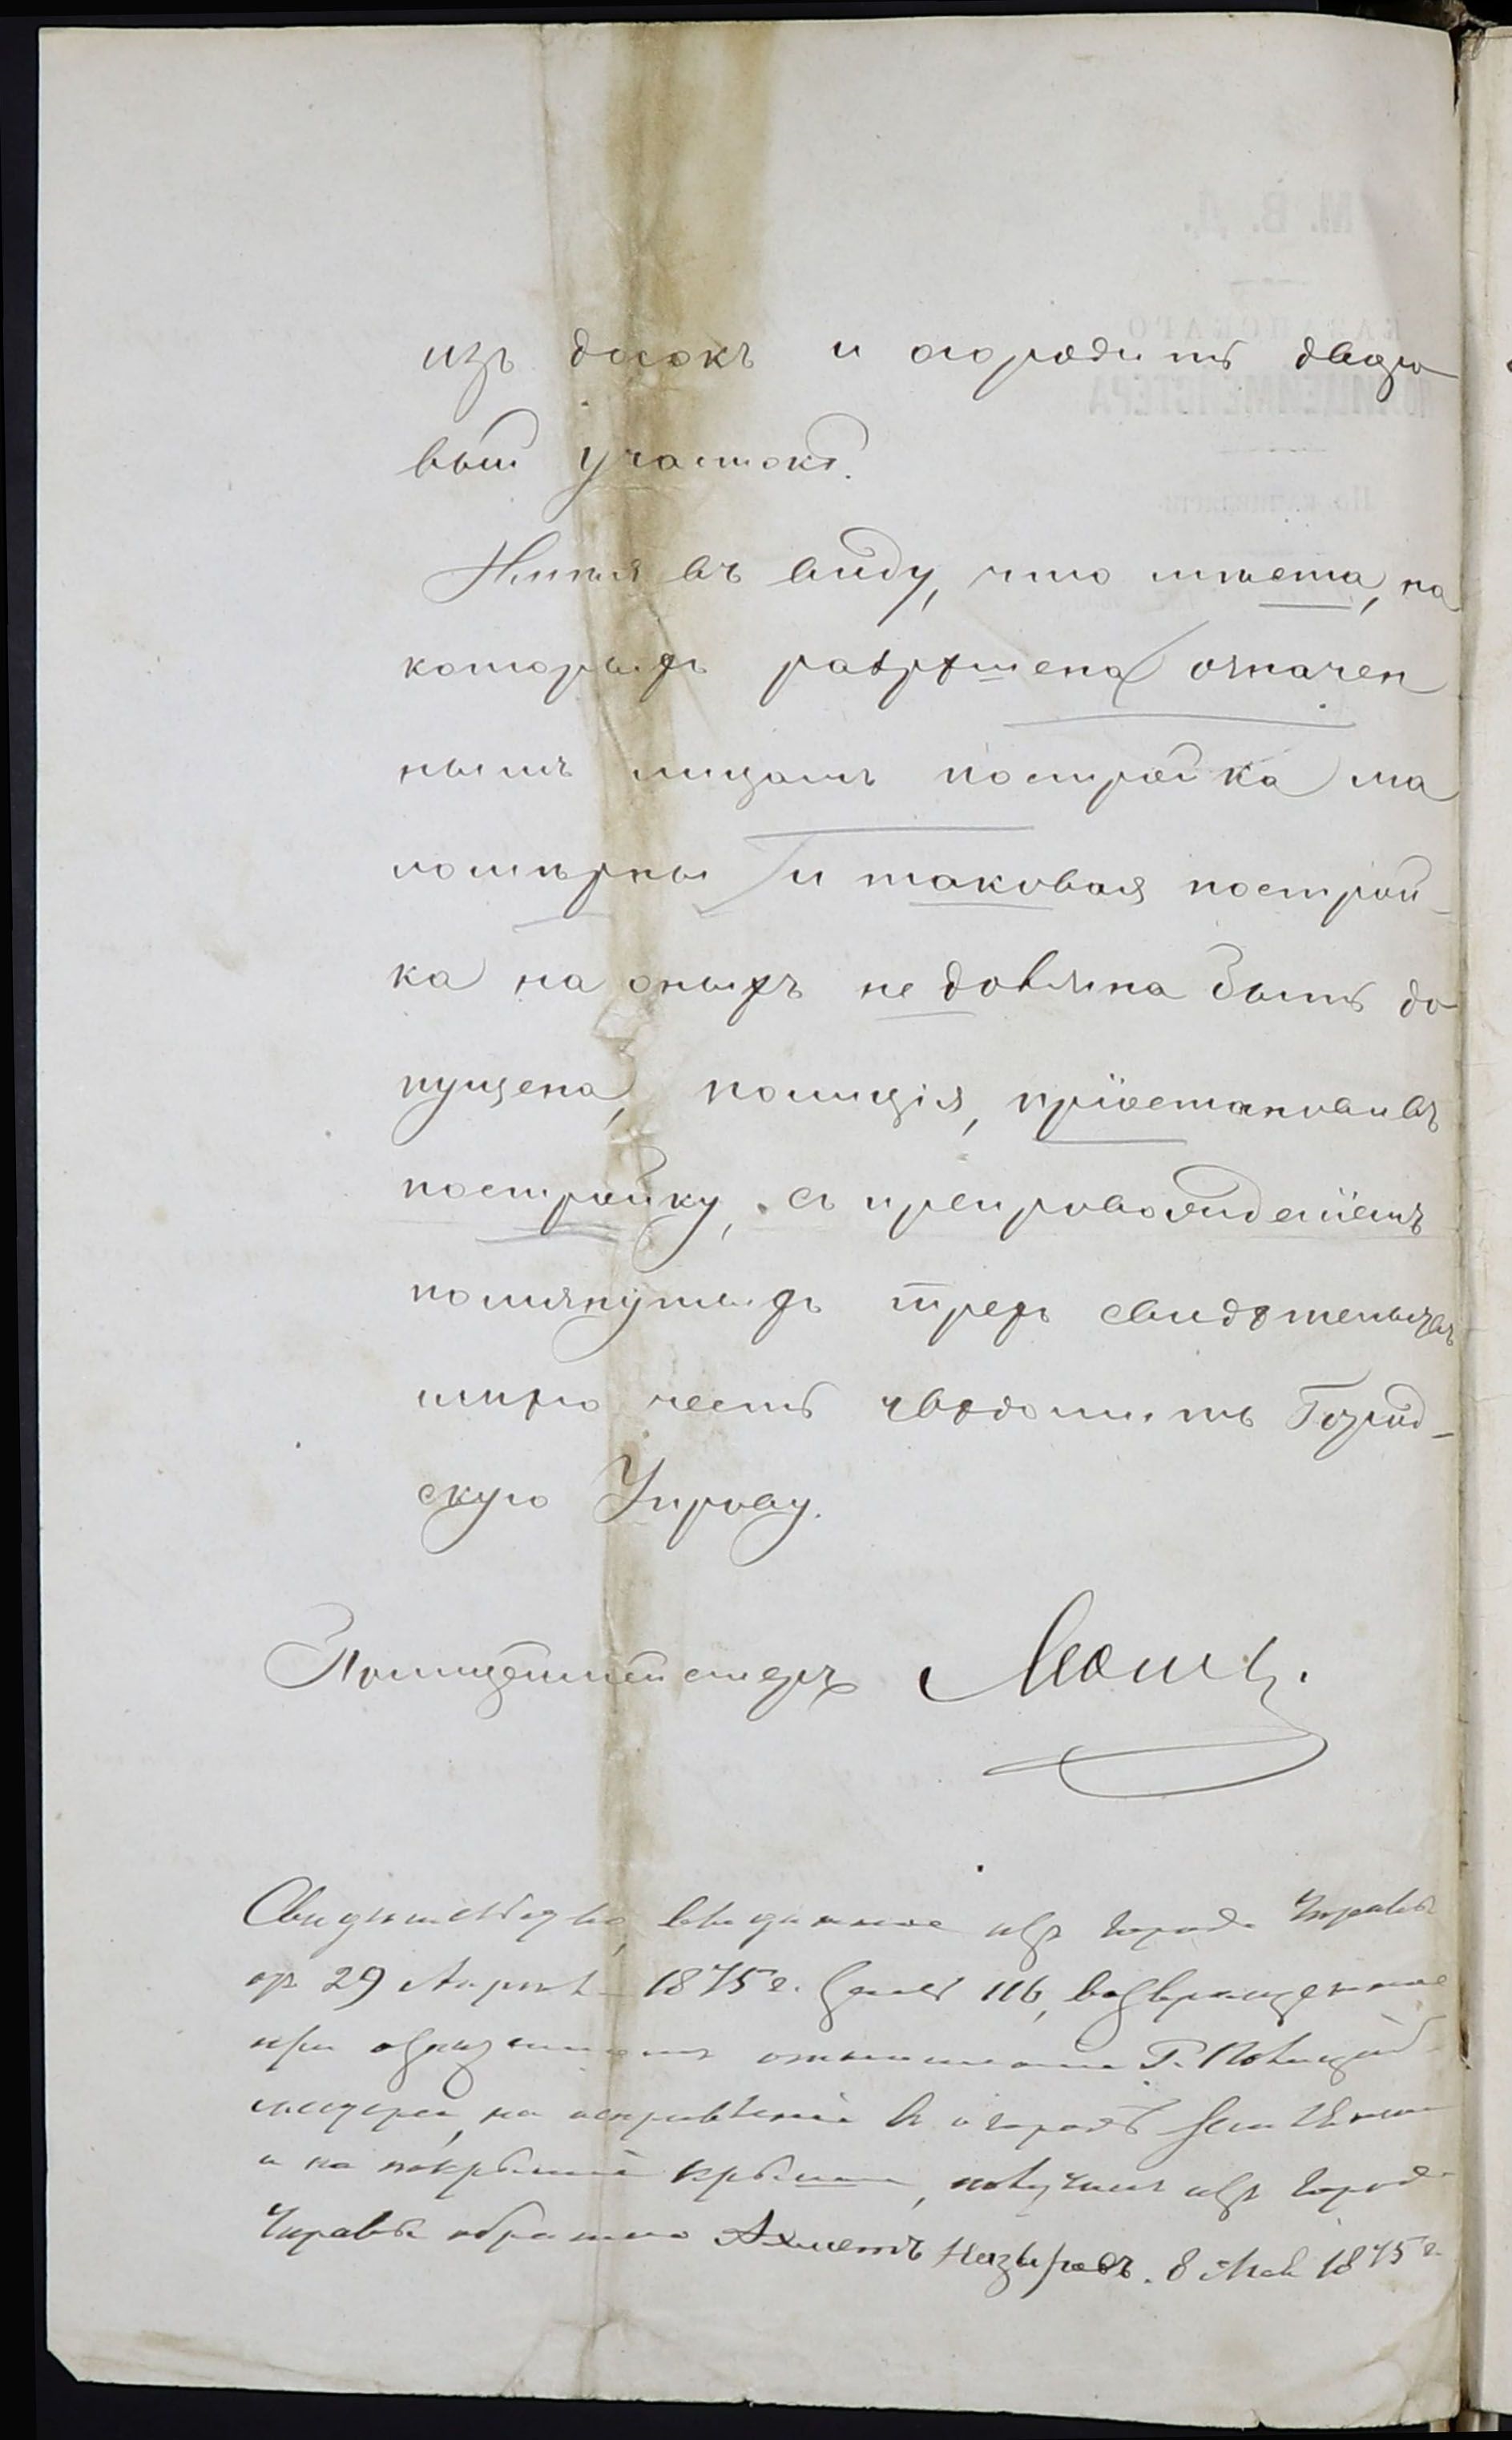 изъ досокъ и огородить дворо
вый участокъ.
Имѣя въ виду, что мѣста, на
которыхъ разрѣшена означен
нымъ лицамъ постройка ма
ломѣрны и таковая построй-
ка на оныхъ не должна быть до
пущена, полиція, пріостановивъ
постройку, съ препровожденіемъ
помянутыхъ трехъ свидѣтельствъ
имѣю честь увѣдомить Город-
скую Управу.
Полицеймейстеръ
Свидѣтельство, выданное изъ Город. Управы
отъ 29 Апрѣля 1875 г. за № 116, возвращенное
при отношеніи Г. Полицей-
мейстера, на исправленіе
и на покрытіе крыши, получилъ изъ Город.
Управы обратно Ахметъ Назыровъ. 8 Мая 1875 г.
М. В. Д.
КАЗАНСКАГО
ПОЛИЦЕЙМЕЙСТЕРА